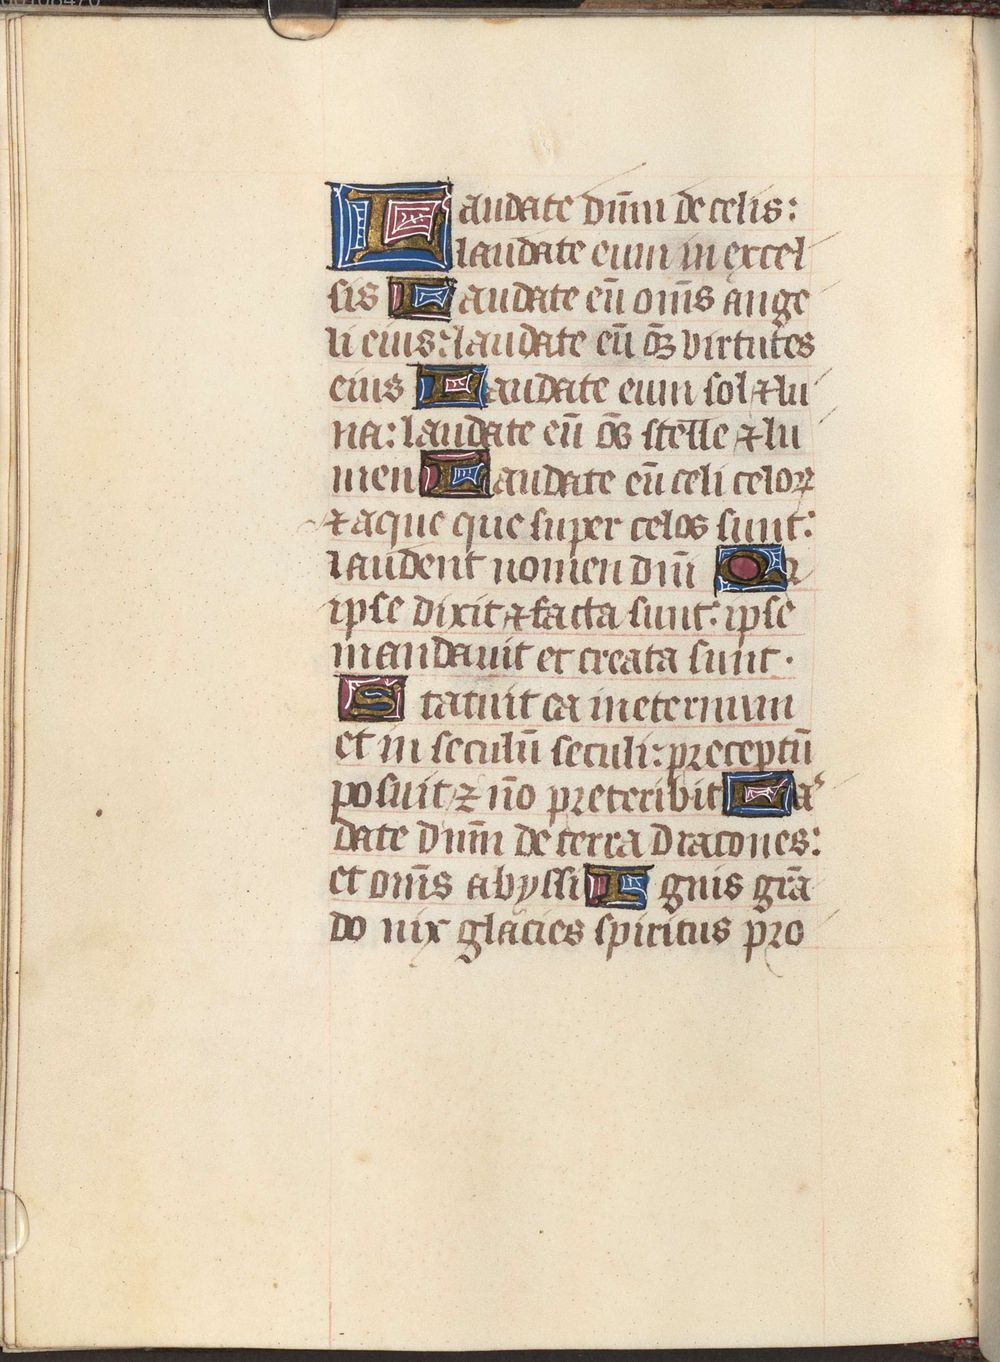 Laudate dn̄m de celis:
laudate eum in excel
sis Laudate eū om̄s ange
li eius: laudate eū om̄s virtutes
eius Laudate eum sol ⁊ lu
na: laudate eū om̄s stelle ⁊ lu
men Laudate eū celi celoꝝ
⁊ aque que super celos sunt:
laudent nomen dn̄i Qr
ipse dixit ⁊ facta sunt: ipse
mandauit et creata sunt.
Statuit ea in eternum
et in seculū seculi: preceptū
posuit ⁊ nō preteribit Lau
date dn̄m de terra dracones:
et om̄s abyssi Ignis grā
do nix glacies spiritus pro